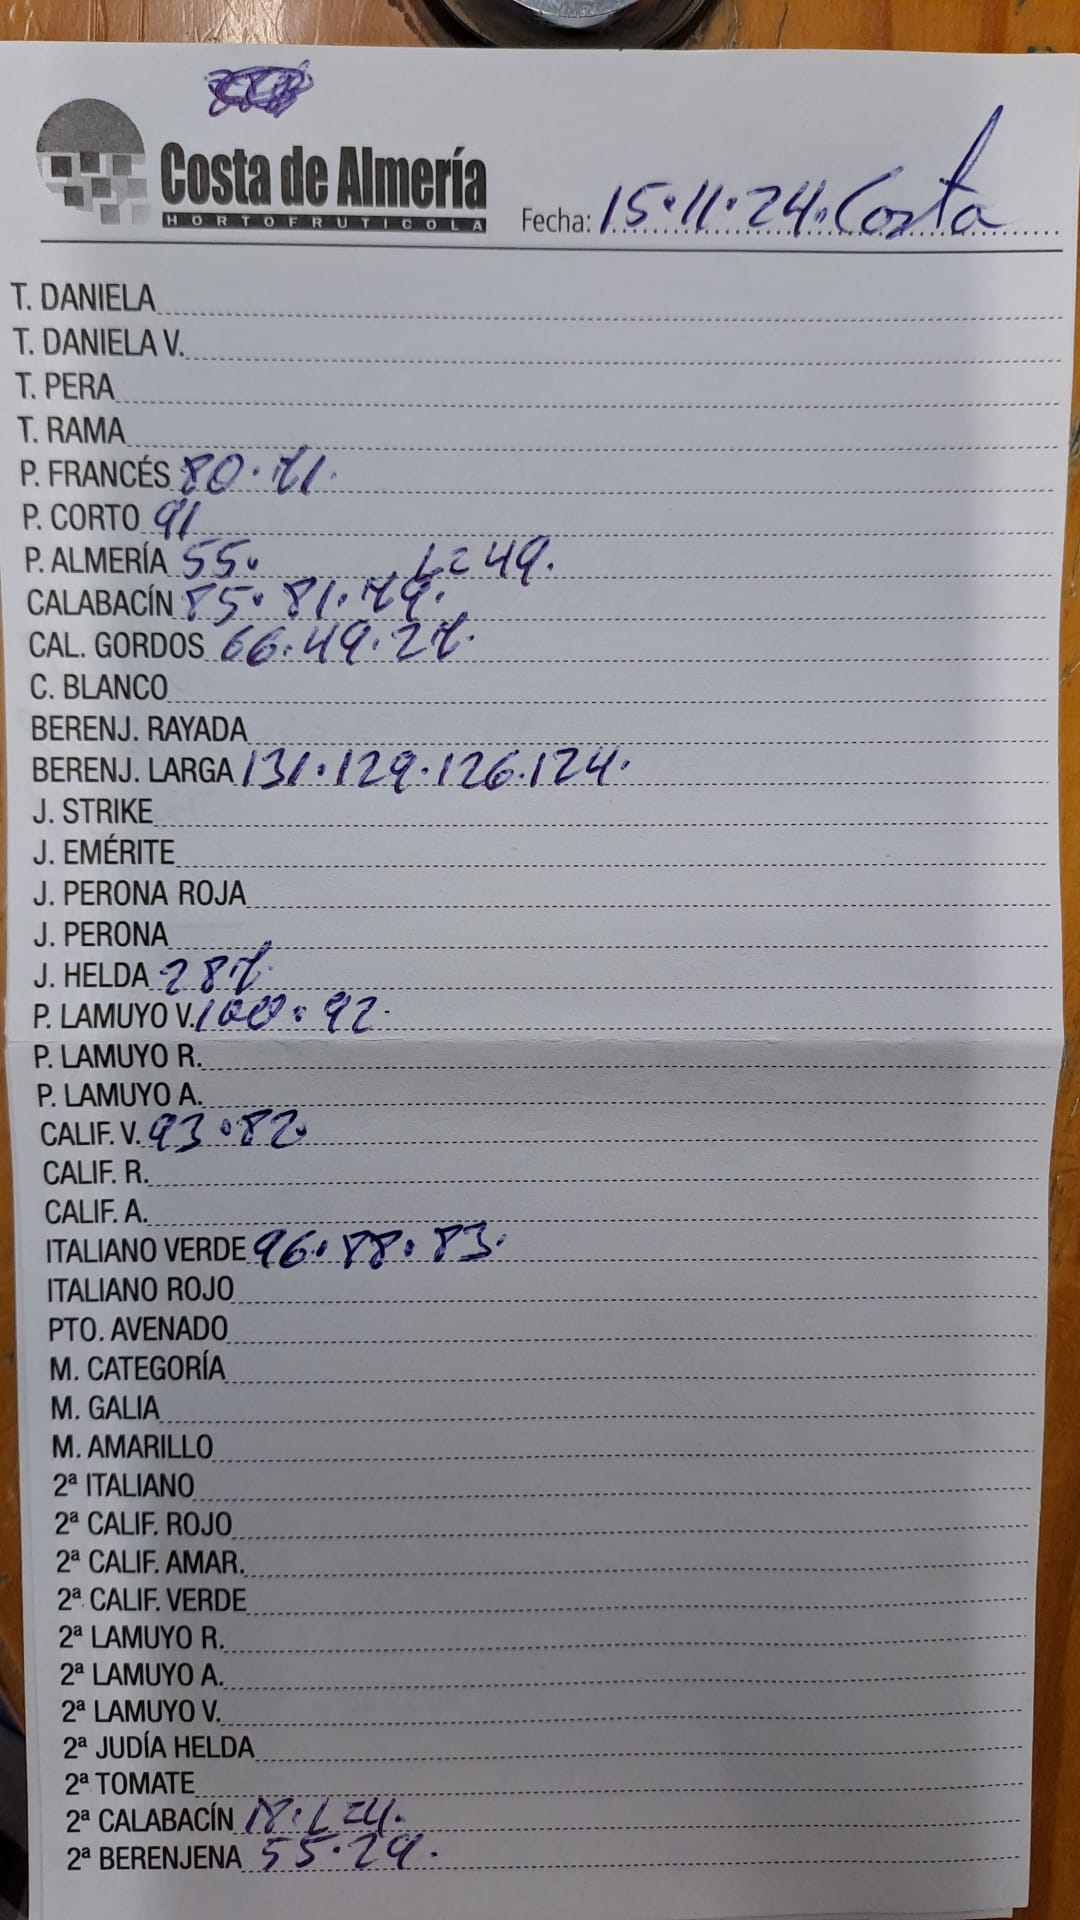 Costa de Almería
HORTOFRUTICOLA
Fecha: 15.11.24. Costa
T. DANIELA
T. DANIELA V.
T. PERA
T. RAMA
P. FRANCÉS 80. 71.
P. CORTO 91
P. ALMERÍA 55. L=49.
CALABACÍN 85. 81. 79.
CAL. GORDOS 66. 49. 27.
C. BLANCO
BERENJ. RAYADA
BERENJ. LARGA 131. 129. 126. 124.
J. STRIKE
J. EMÉRITE
J. PERONA ROJA
J. PERONA
J. HELDA 287.
P. LAMUYO V. 100. 92.
P. LAMUYO R.
P. LAMUYO A.
CALIF. V. 93. 82.
CALIF. R.
CALIF. A.
ITALIANO VERDE 96. 88. 83.
ITALIANO ROJO
PTO. AVENADO
M. CATEGORÍA
M. GALIA
M. AMARILLO
2ª ITALIANO
2ª CALIF. ROJO
2ª CALIF. AMAR.
2ª CALIF. VERDE
2ª LAMUYO R.
2ª LAMUYO A.
2ª LAMUYO V.
2ª JUDÍA HELDA
2ª TOMATE
2ª CALABACÍN
2ª BERENJENA 55. 29.